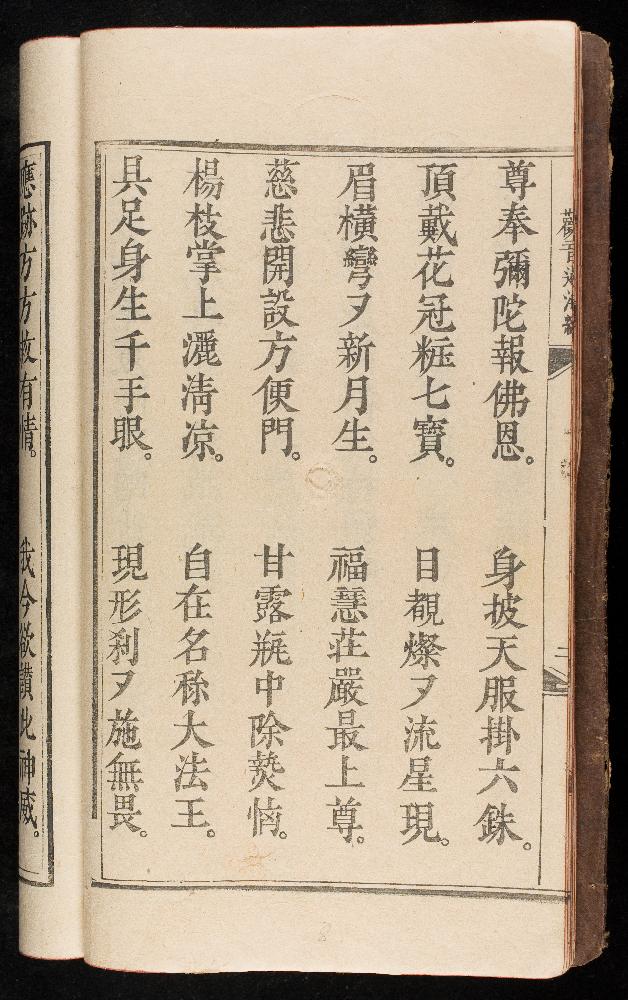 尊奉彌陀報佛恩。 身披天服掛六銖。
頂戴花冠粧七寶。 目覩燦ヌ流星現。
眉橫彎ヌ新月生。 福慧莊嚴最上尊。
慈悲開設方便門。 甘露瓶中除𤍠惱。
楊枝掌上灑淸凉。 自在名稱大法王。
具足身生千手眼。 現形刹ヌ施無畏。
應跡方方救有情。 我今欲讃此神威。